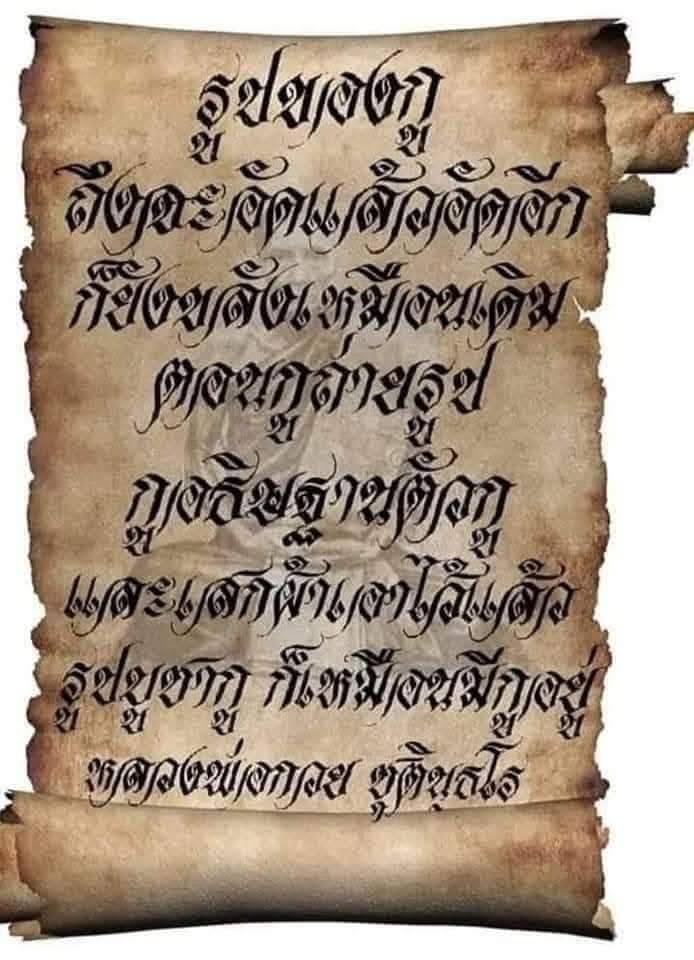 รูปของกู
ถึงจะอัดแล้วอัดอีก
ก็ยังขลังเหมือนเดิม
ตอนกูถ่ายรูป
กูอธิษฐานตัวกู
และเสกผ้าเอาไว้แล้ว
รูปบูชากู ก็เหมือนมีกูอยู่
หลวงพ่อกวย ชุตินฺธโร